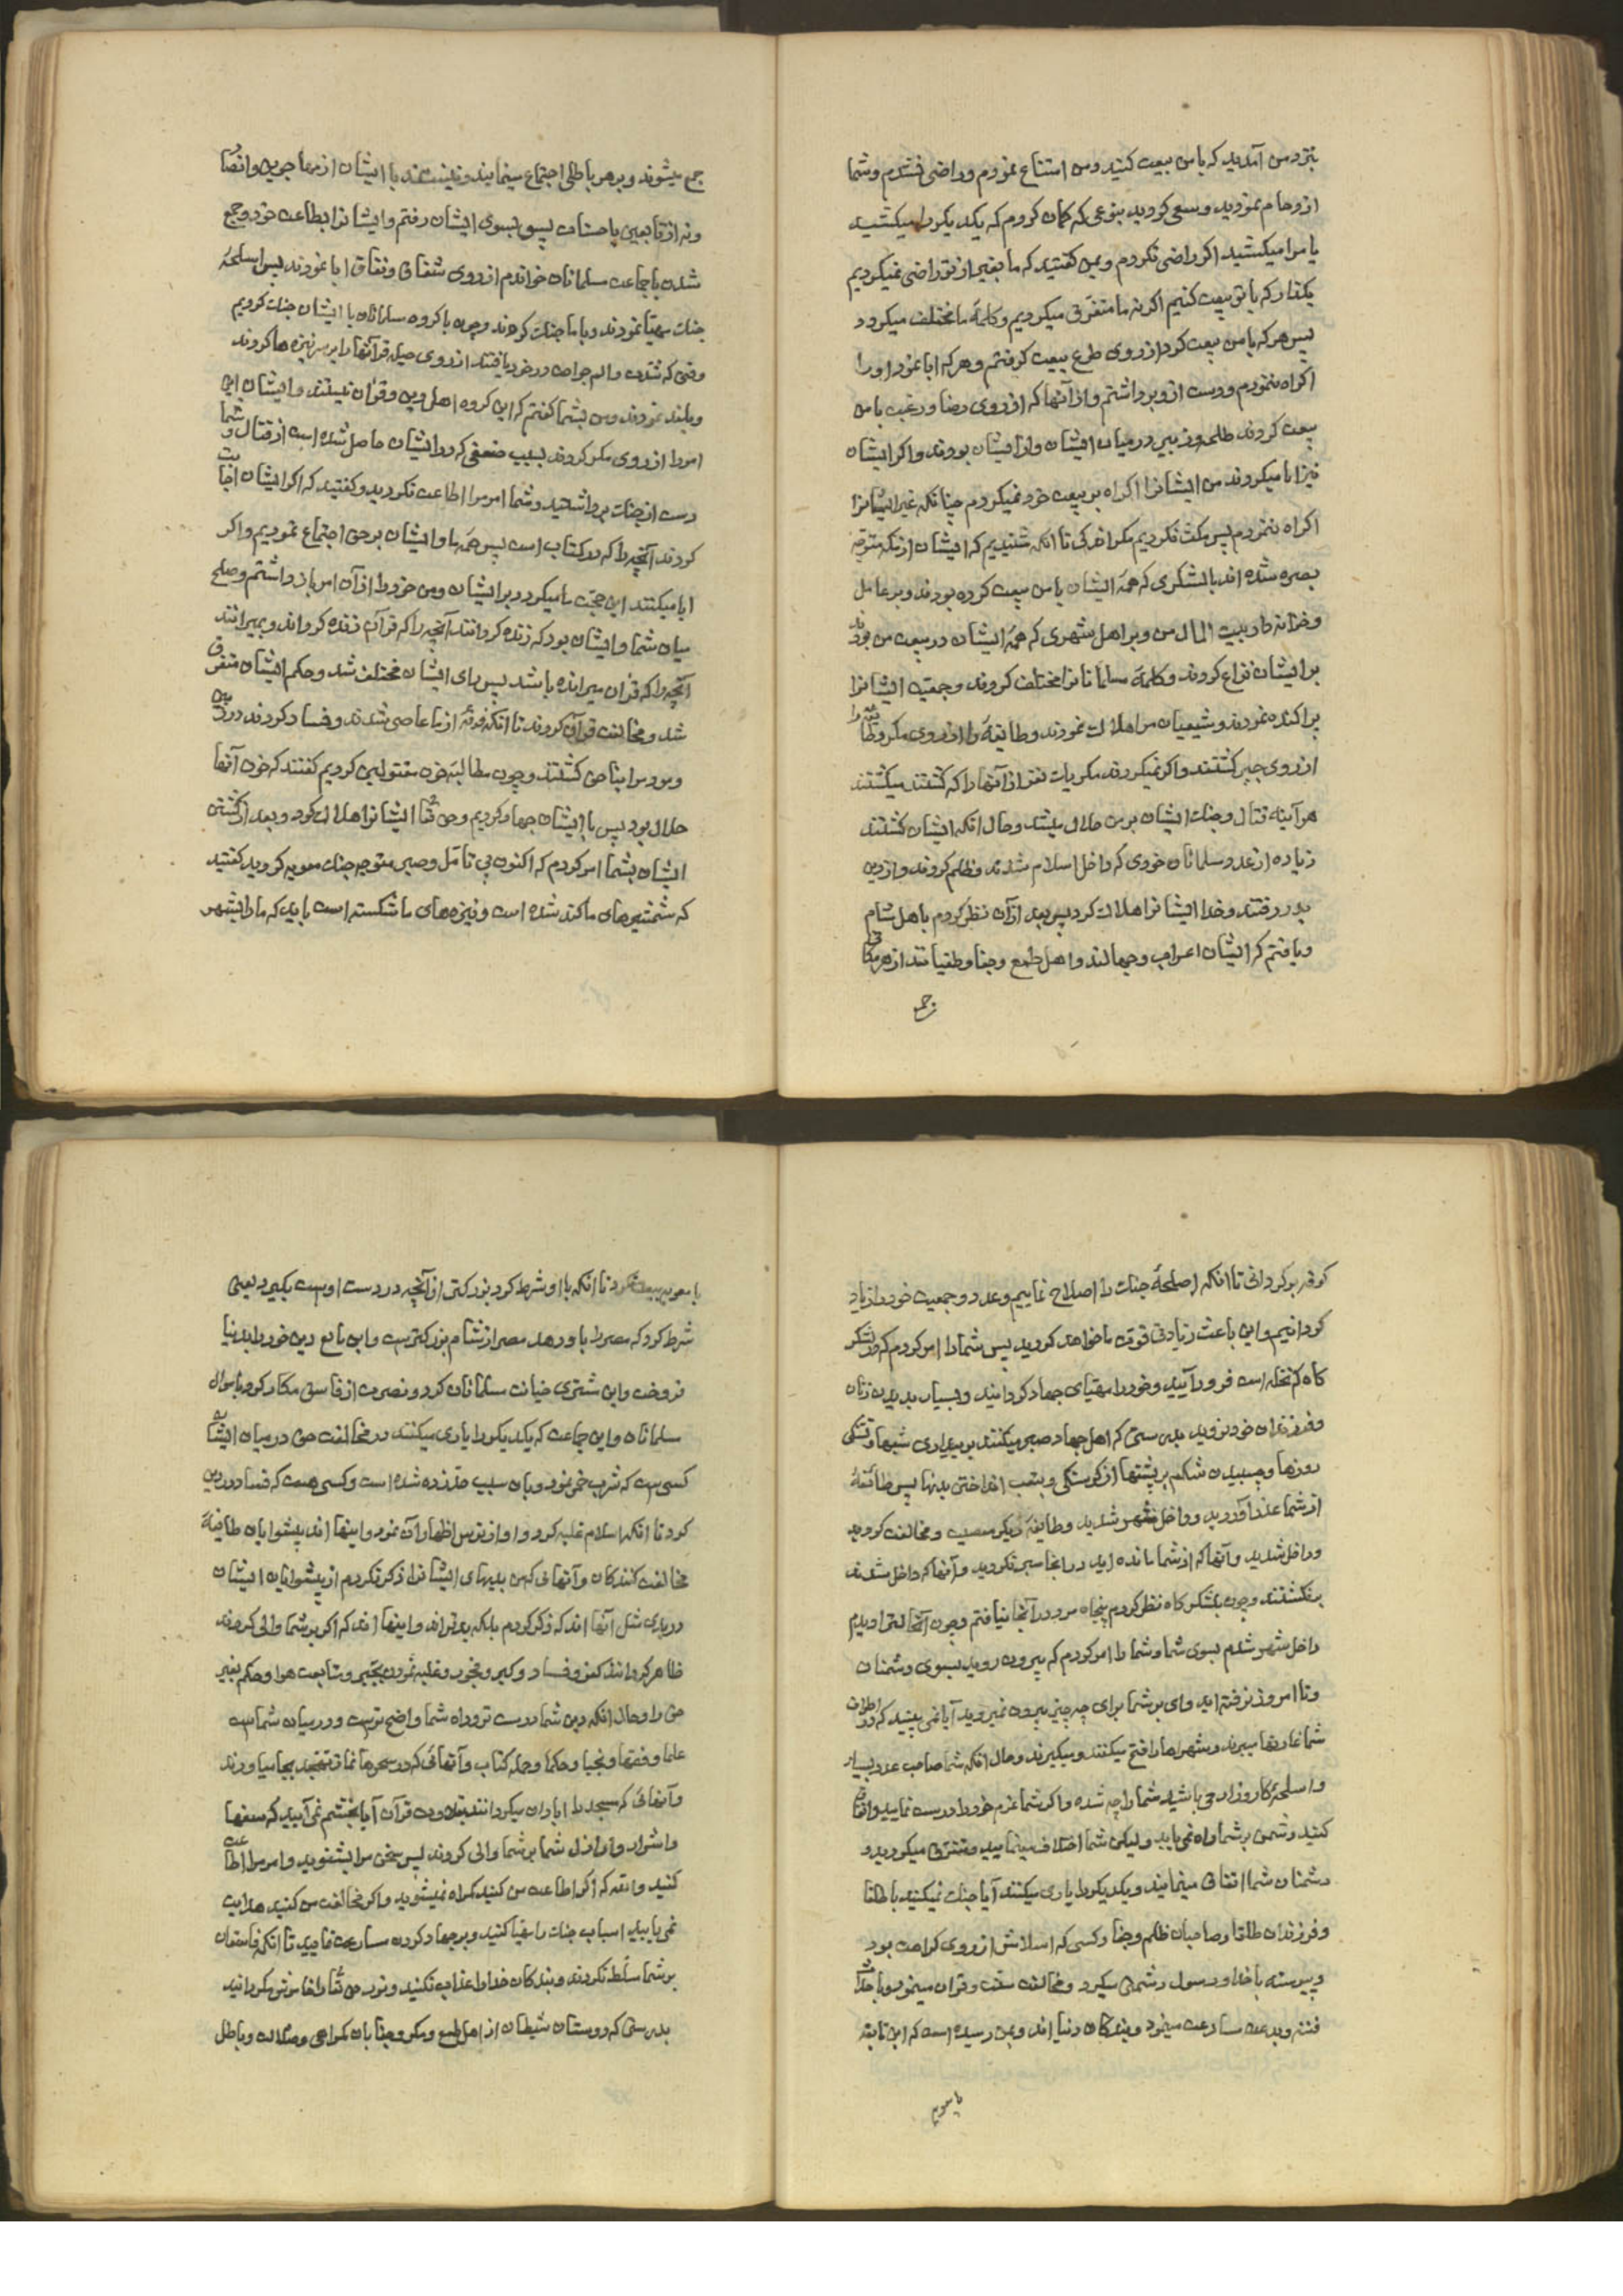 بنزد من آمدید که با من بیعت کنید و من امتناع نمودم و راضی نشدم و شما
ازدحام نمودید و سعی کردید بنوعی که کمان کردم که یکدیکر را میکشید
یا مرا میکشید اکر راضی نکردم و بمن کفتید که ما بغیر از تو راضی نمیکردیم
بکذار که با تو بیعت کنیم اکر نه ما متفرق میکردیم و کلمهٔ ما مختلف میکردد
پس هر که با من بیعت کرد از روی طوع بیعت کرفتم و هر که ابا نمود او را
اکراه ننمودم و دست ازو برداشتم و از آنها که از روی رضا و رغبت با من
بیعت کردند طلحه و زبیر در میان ایشان و از ایشان بودند و اکر ایشان
نیز ابا میکردند من ایشانرا اکراه بر بیعت خود نمیکردم چنانکه غیر ایشانرا
اکراه ننمودم پس مکث نکردیم مکر اندکی تا انکه شنیدیم که ایشان از مکه متوجه
بصره شده اند با لشکری که همهٔ ایشان با من بیعت کرده بودند و بر عامل
و خزانه دار بیت المال من و بر اهل شهری که همهٔ ایشان در بیعت من بودند
بر ایشان نزاع کردند و کلمهٔ مسلمانانرا مختلف کردند و جمعیت ایشانرا
پراکنده نمودند و شیعیان مرا هلاک نمودند و طایفهٔ را از روی مکر و طایفه را
از روی جبر کشتند و اکر نمیکردند مکر یک نفر از آنها را که کشتند میکشتند
هرآینه قتال و جنک ایشان بر من حلال میشد و حال انکه ایشان کشتند
زیاده از عدد مسلمانان خودی که داخل اسلام شدند و ظلم کردند و از دین
بدر رفتند و خدا ایشانرا هلاک کرد پس بعد ازان نظر کردم باهل شام
و یافتم که ایشان اعراب و جهالند و اهل طمع و جفا و طغیانند از هر مکانی
جمع
جمع میشوند و بر هر باطلی اجتماع مینمایند و نیستند با ایشان از مهاجرین و انصار
و نه از تابعین باحسان پس بسوی ایشان رفتم و ایشانرا بطاعت خود و جمع
شدن با جماعت مسلمانان خواندم از روی شقاق و نفاق ابا نمودند پس اسلحهٔ
جنک مهیا نمودند و با ما جنک کردند و چون با کروه مسلمانان با ایشان جنک کردیم
وقتی که شدت و الم جراحت در خود یافتند از روی حیله قرآنها را بر سر نیزه ها کردند
و بلند نمودند و من بشما کفتم که این کروه اهل دین و قران نیستند و ایشان این
امر را از روی مکر کردند بسبب ضعفی که در ایشان حاصل شده است از قتال و شما
دست از جنک برداشتید و شما امر مرا اطاعت نکردید و کفتید که اکر ایشان اجابت
کردند آنچه را که در کتاب است پس همهٔ ما و ایشان بر حق اجتماع نمودیم و اکر
ابا میکنند این حجت ما میکردد بر ایشان و من خود را از آن امر باز داشتم و صلح
میان شما و ایشان بود که زنده کردانند آنچه را که قرآن زنده کرداند و بمیرانند
آنچه را که قران میرانده باشد پس رای ایشان مختلف شد و حکم ایشان متفرق
شد و مخالفت قرآن کردند تا انکه فرقهٔ از ما عاصی شدند و فساد کردند در زمین
و مردمرا بناحق کشتند و چون مطالبهٔ خون مقتولین کردیم کفتند که خون آنها
حلال بود پس با ایشان جهاد کردیم و حق تعا ایشانرا هلاک کرد و بعد از کشتن
ایشان بشما امر کردم که اکنون بی تامل و صبر متوجه جنک معویه کردید کفتید
که شمشیرهای ما کند شده است و نیزه های ما شکسته است باید که ما را بشهر
کوفه برکردانی تا انکه اصلحهٔ جنک را اصلاح نماییم و عدد و جمعیت خود را زیاد
کردانیم و این باعث زیادتی قوت ما خواهد کردید پس شما را امر کردم که در لشکر
کاه کم نخله است فرود آیید و خود را مهیای جهاد کردانید و بسیار بدیدن زنان
و فرزندان خود نروید بدرستی که اهل جهاد صبر میکنند بر بیداری شبها و تشنکی
روزها و چسبیدن شکم بر پشتها از کرسنکی و بتعب انداختن بدنها پس طائفهٔ
از شما عذر آوردید و داخل شهر شدید و طایفهٔ دیکر معصیت و مخالفت کردید
و داخل شدید و آنها که از شما مانده اید در انجا صبر نکردید و آنها که داخل شدند
برنکشتند و چون بلشکرکاه نظر کردم پنجاه مرد در آنجا نیافتم و چون آنحالترا دیدم
داخل شهر شدم بسوی شما و شما را امر کردم که بیرون روید بسوی دشمنان
و تا امروز نرفته اید وای بر شما برای چه چیز بیرون نمیروید آیا نمی بینید که در اطراف
شما غارتها میبرند و شهرها را فتح میکنند و میکیرند و حال انکه شما صاحب عدد بسیار
و اسلحهٔ کارزار می باشید شما را چه شده و اکر شما عزم خود را درست نمایید و اتفاق
کنید دشمن بر شما راه نمی یابد و لیکن شما اختلاف مینمایید و متفرق میکردید و
دشمنان شما اتفاق مینمایند و یکدیکر را یاری میکنند آیا جنک نمیکنید با طلقا
و فرزندان طلقا و صاحبان ظلم و جفا و کسی که اسلامش از روی کراهت بود
و پیوسته با خدا و رسول دشمنی میکرد و مخالفت سنت و قران مینمود و با
فتنه و بدعت مسارعت مینمود و بندکان دنیا اند و بمن رسیده است که ابن نابغه
با معویه
با معویه بیعت نکرد تا انکه با او شرط کرد بزرکتر از آنچه در دست اوست بکیرد یعنی
شرط کرد که مصر را باو دهد مصر از شام بزرکترست و این بایع دین خود را بدنیا
فروخت و این مشتری خیانت مسلمانان کرد و نصرت از فاسق مکار کرد باموال
مسلمانان و این جماعت که یکدیکر را یاری میکنند در مخالفت حق در میان ایشان
کسی هست که شرب خمر نمود و بان سبب حد زده شده است و کسی هست که فساد در دین
کرد تا انکه اسلام غلبه کرد و او از ترس اظهار آن نمود و اینها اند پیشوایان طایفهٔ
مخالفت کنندکان و آنهائی که من بدیهای ایشانرا ذکر نکردم از پیشوایان ایشان
در بدی مثل آنها اند که ذکر کردم بلکه بدتراند و اینها اند که اکر بر شما والی کردند
ظاهر کردانند کفر و فساد و کبر و فجور و غلبه نمودن بتجبر و متابعت هوا و حکم بغیر
حق را و حال انکه دین شما درست تر و راه شما واضح ترست و در میان شماست
علما و فقها و نجبا و حکما و حملهٔ کتاب و آنهائی که در سحرها نماز تهجد بجا میاورند
و آنهائی که مسجد را ابادان میکردانند بتلاوت قرآن آیا بخشم نمی آیید که سفها
و اشرار و اراذل شما بر شما والی کردند پس سخن مرا بشنوید و امر مرا اطاعت
کنید والله که اکر اطاعت من کنید کمراه نمیشوید و اکر مخالفت من کنید هدایت
نمی یابید اسباب جنک را مهیا کنید و بر جهاد کردن مسارعت نمایید تا انکه فاسقان
بر شما مسلط نکردند و بندکان خدا را عذاب نکنند و نور حق تعا را خاموش نکردانند
بدرستی که دوستان شیطان از اهل طمع و مکر و جفا بان کمراهی و ضلالت و باطل